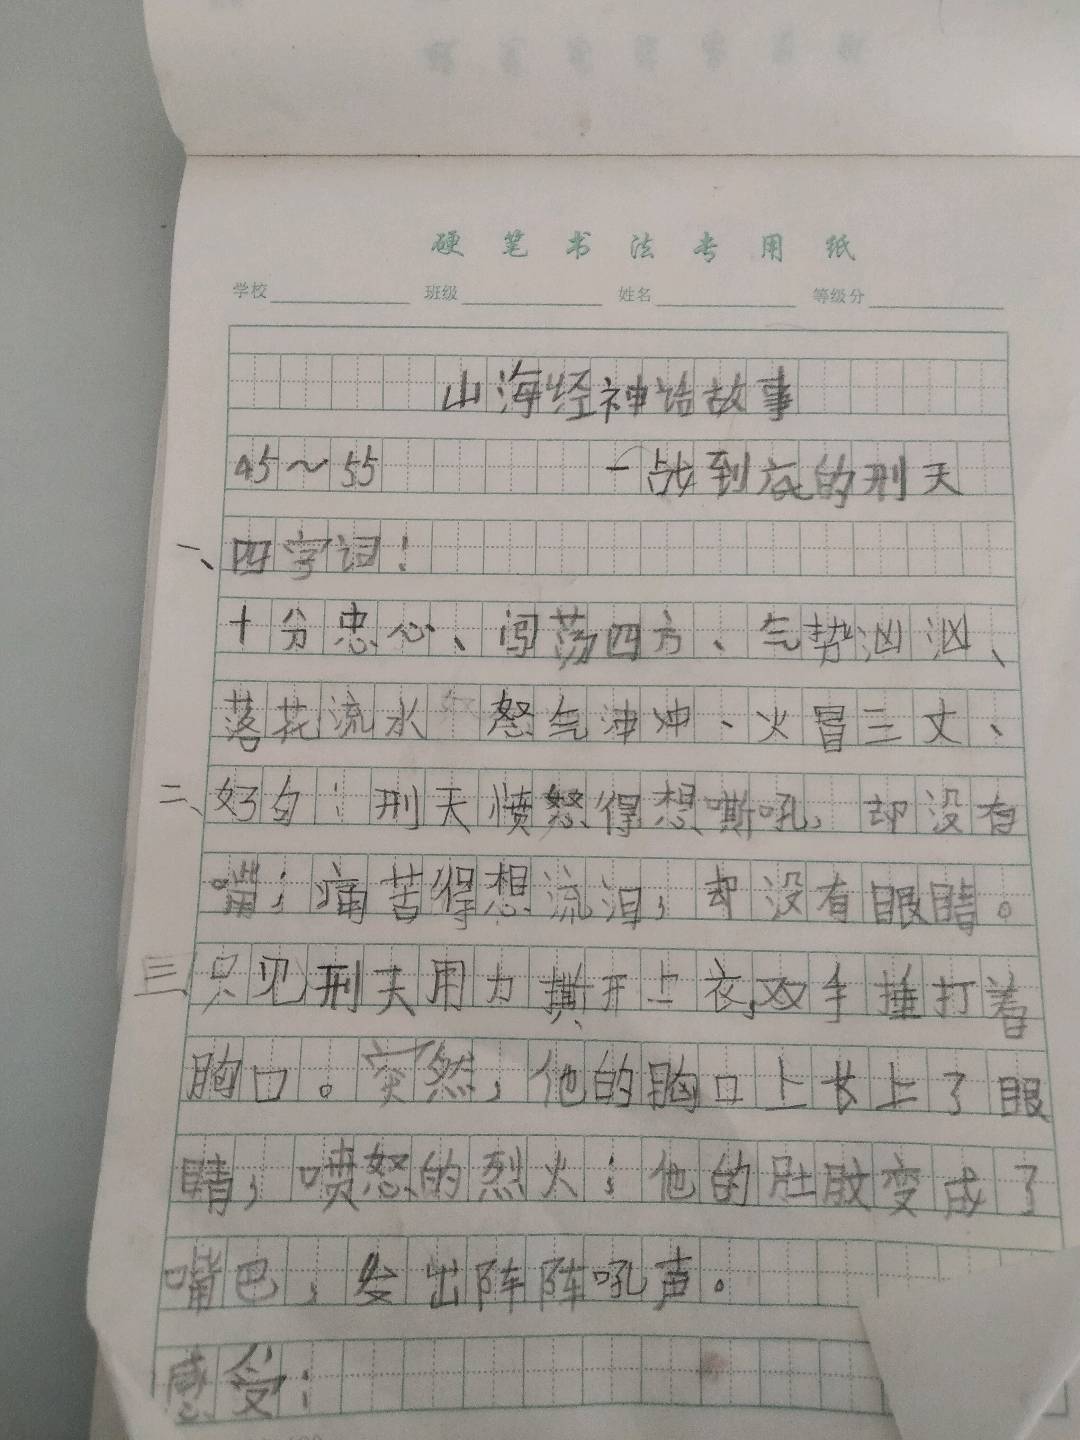 硬笔书法专用纸
学校 班级 姓名 等级分
山海经神话故事
45～55 一战到底的刑天
一、四字词：
十分忠心、闯荡四方、气势汹汹、
落花流水 怒气冲冲、火冒三丈、
二、好句：刑天愤怒得想嘶吼，却没有
嘴；痛苦得想流泪，却没有眼睛。
三、只见刑天用力撕开上衣，双手捶打着
胸口。突然，他的胸口上长上了眼
睛，喷怒的烈火；他的肚肢变成了
嘴巴，发出阵阵吼声。
感受：